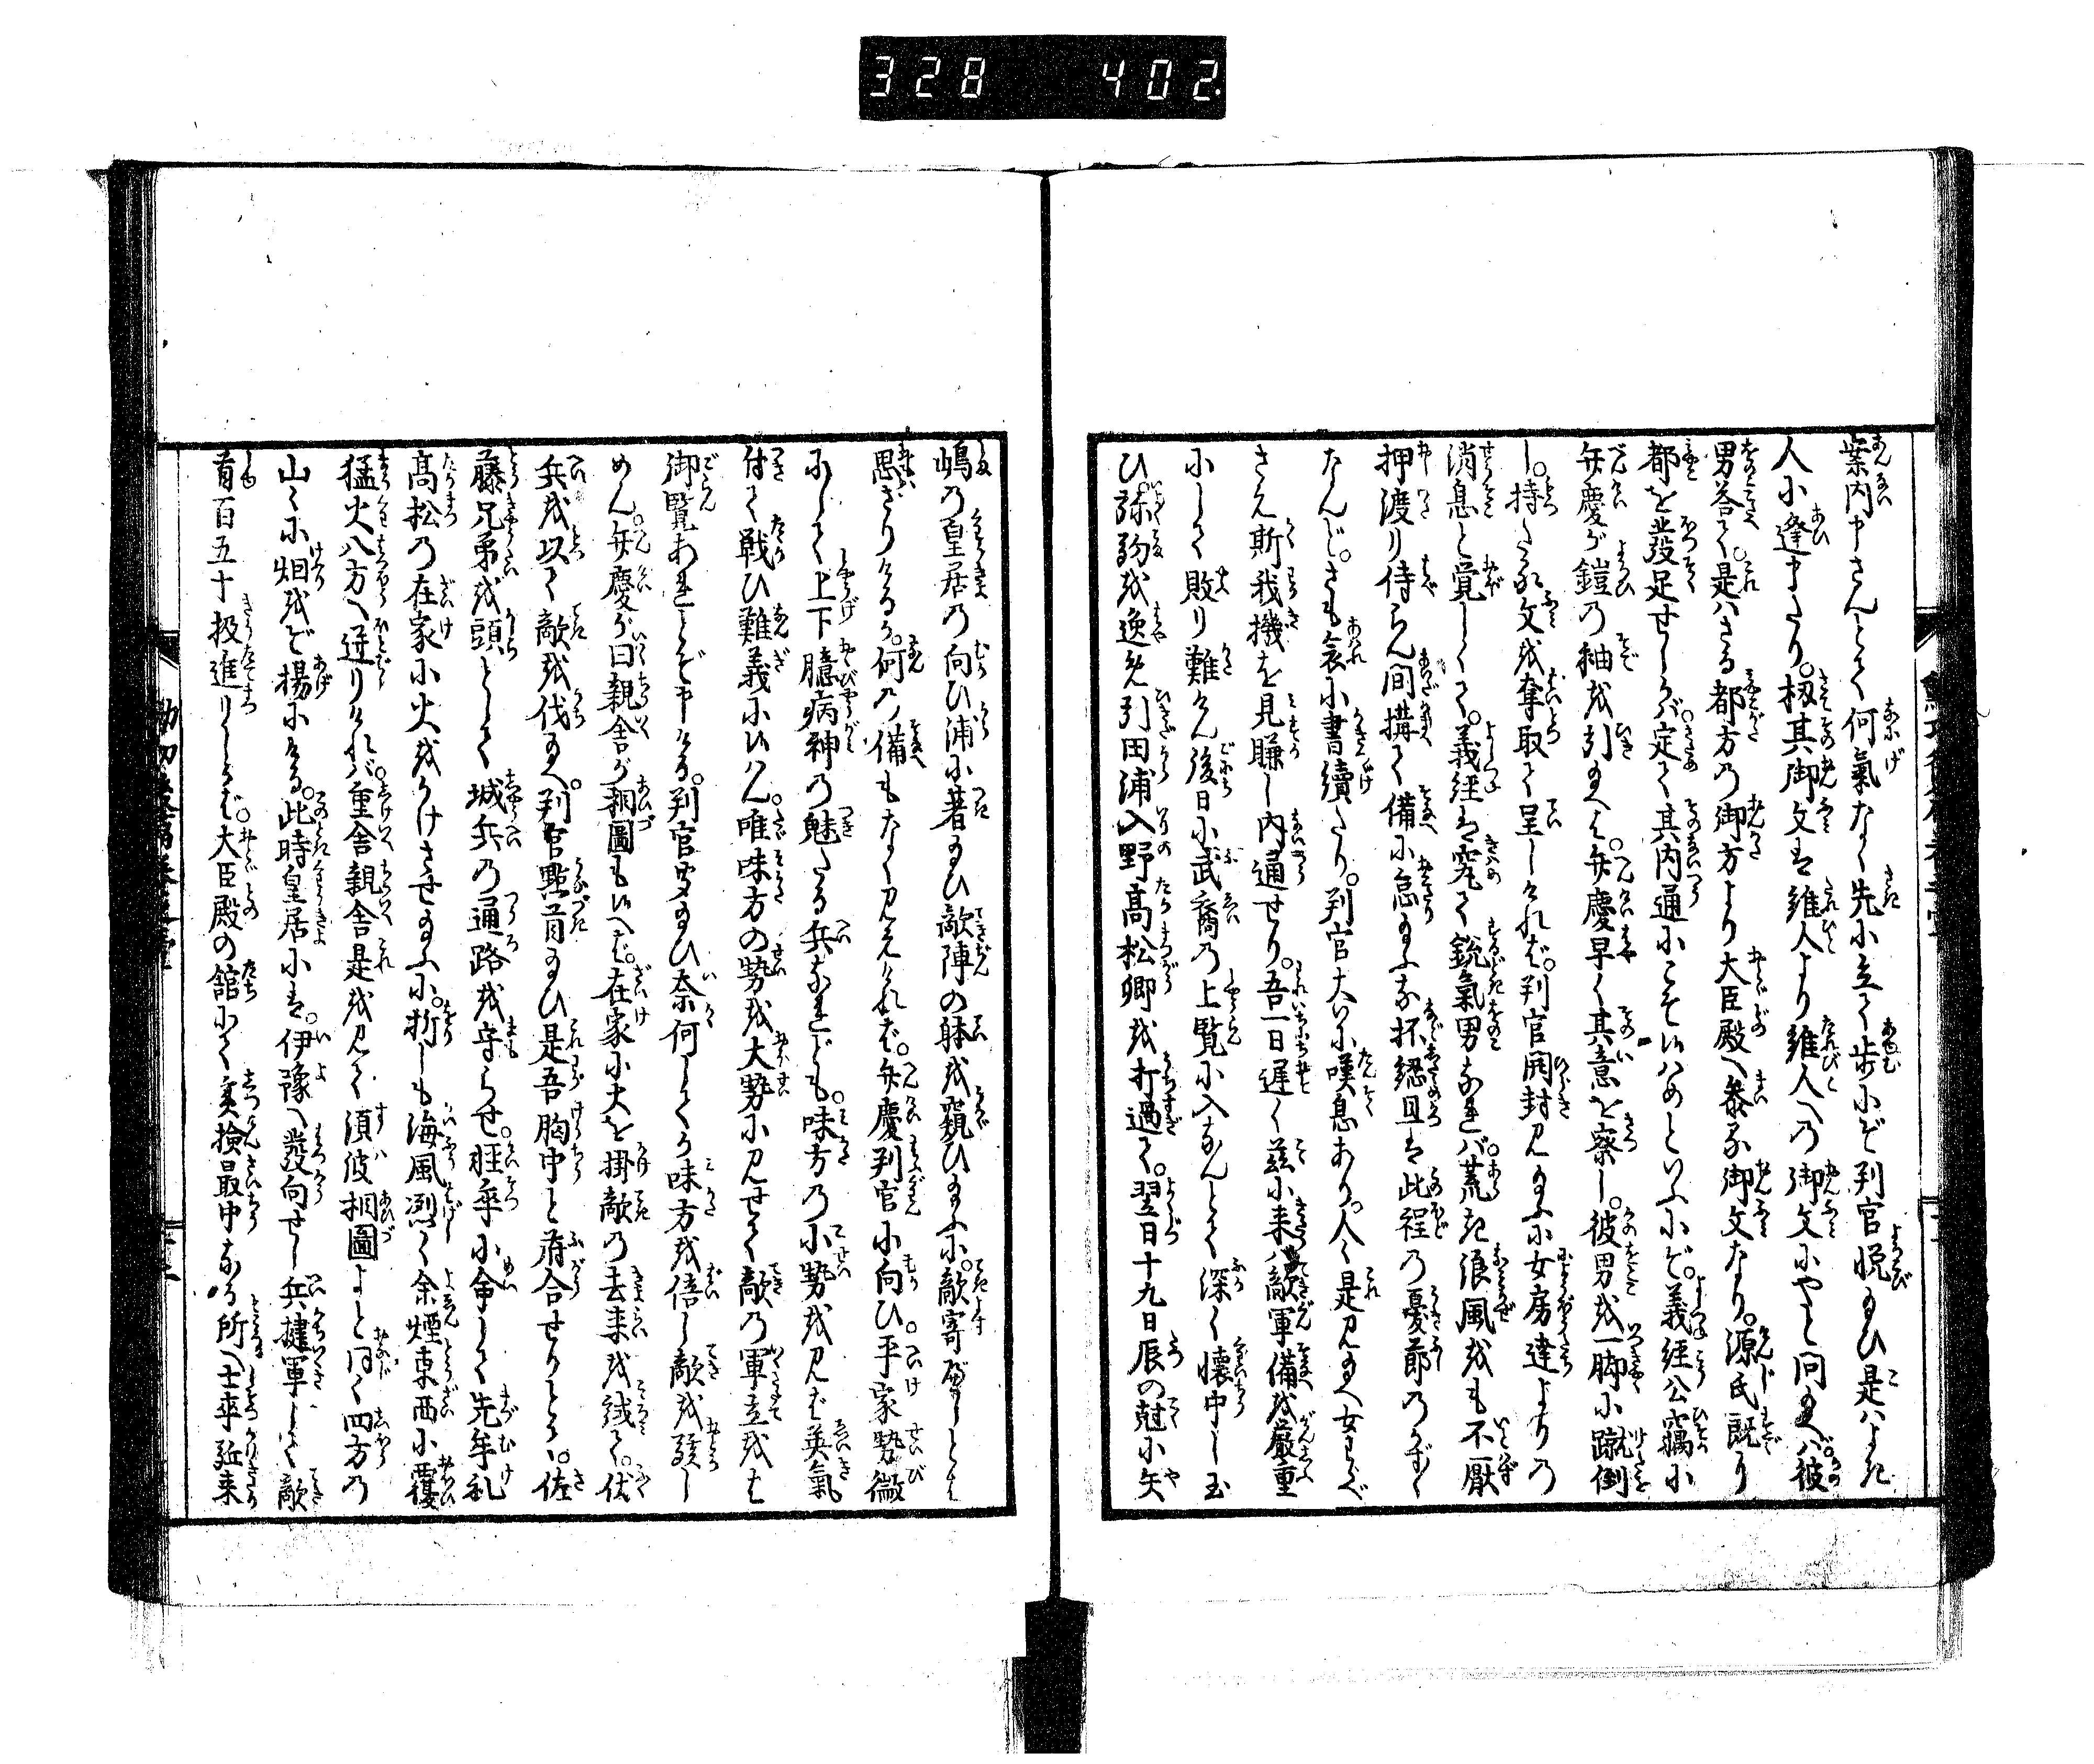 328 402
案内申さんとて何氣なく先に立て歩にぞ判官悦給ひ是はよき
人に逢申たり。扨其御文は誰人より誰人への御文にやと問給へば。彼
男答て。是はさる都方の御方より大臣殿へ参る御文なり。源氏既に
都を發足せしが。定て其内通にこそ候はめといふにぞ。義經公竊に
弁慶が鎧の袖を引給へば。弁慶早く其意を察し。彼男を一脚に蹴倒
し。持たる文を奪取て呈しければ。判官開封見給ふに女房達よりの
消息と覚しくて。義經は究て鋭氣男なれば。荒き浪風をも不厭
押渡り侍らん間構て備に怠給ふな抔認且は此程の憂節のかず〱
なんど。さも哀に書續たり。判官大いに嘆息あり。人々是見給へ女すら
さえ斯我機を見賺し内通せり。吾一日遅く茲に来ば敵軍備を嚴重
にして敗り難けん後日に武衛の上覧に入なんとて深く懐中し玉
ひ。弥駒を逸め引田浦入野高松郷を打過て。翌日十九日辰の尅に矢
嶋の皇居の向ひ浦に著給ひ敵陣の躰を窺ひ給ふに。敵寄べしとは
思さりけるか。何の備もなく見えければ。弁慶判官に向ひ。平家勢微
にして上下臆病神の魅たる兵なれども。味方の小勢を見ば英氣
付て戦ひ難義に候はん。唯味方の勢を大勢に見せて敵の軍立をも
御覧あれとぞ申ける。判官聞給ひ奈何してか味方を倍し敵を發し
めん弁慶が曰親舎が相圖も候へば。在家に火を掛敵の去来を諜て。伏
兵を以て敵を伐給へ。判官點首給ひ是吾胸中と府合せりとて。佐
藤兄弟を頭として城兵の通路を守らせ。雑卒に命して先牟礼
高松の在家に火をかけさせ給ふに。折しも海風烈く余煙東西に覆
猛火八方へ迸りければ。重舎親舎是を見て須波相圖よと同く四方の
山々に烟をぞ揚にける。此時皇居には。伊豫へ發向せし兵揵軍して敵
首百五十扱進りしかば。大臣殿の舘にて実撿最中なる所へ士卒延来